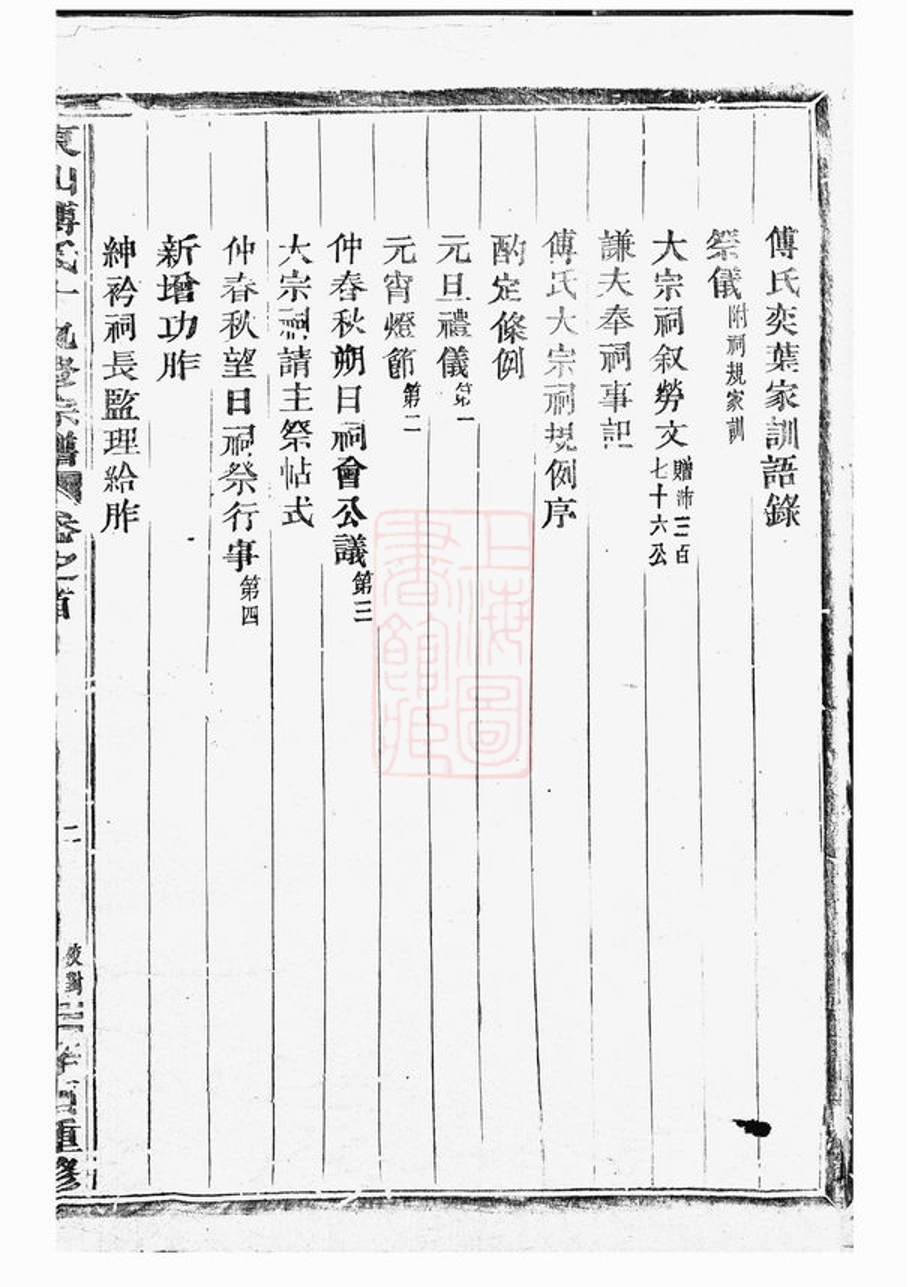 傅氏奕葉家訓語錄
祭儀附祠規家訓
大宗祠叙勞文贈沛三百七十六公
謙夫奉祠事記
傅氏大宗祠規例序
酌定條例
元旦禮儀第一
元宵燈節第二
仲春秋朔日祠會公議第三
大宗祠請主祭帖式
仲春秋望日祠祭行事第四
新增功胙
紳衿祠長監理給胙
東山傅氏十九修宗譜 卷之首
二
校對
重修
上海圖
書館藏